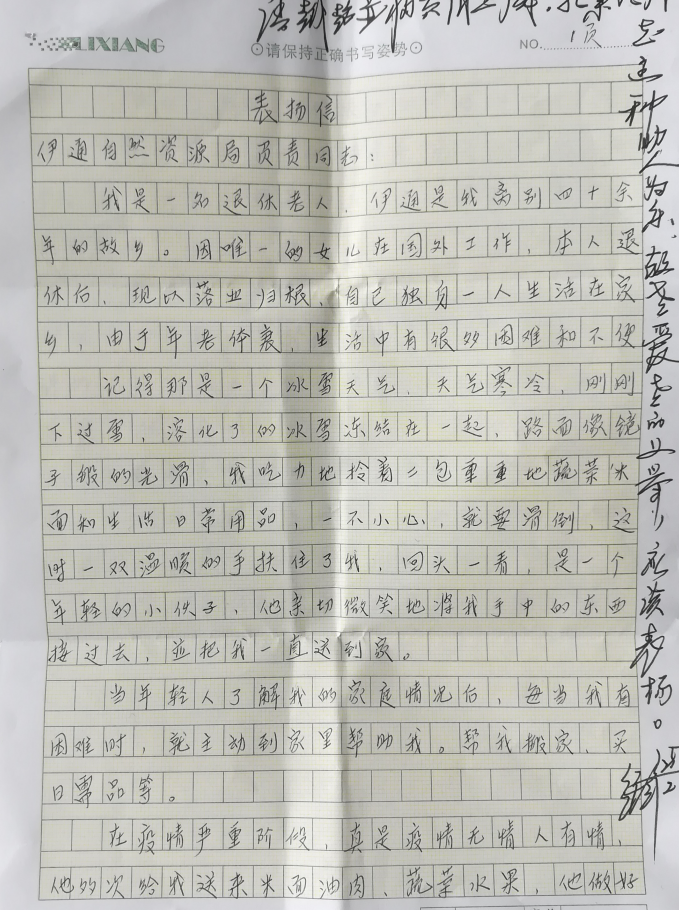 LIXIANG
⊙请保持正确书写姿势⊙
NO. 1页
表扬信
伊通自然资源局负责同志：
我是一名退休老人，伊通是我离别四十余
年的故乡。因唯一的女儿在国外工作，本人退
休后，现以落业归根，自己独身一人生活在家
乡，由于年老体衰，生活中有很多困难和不便
记得那是一个冰雪天气，天气寒冷，刚刚
下过雪，溶化了的冰雪冻结在一起，路面像镜
子般的光滑，我吃力地拎着二包重重地蔬菜米
面和生活日常用品，一不小心，就要滑倒，这
时一双温暖的手扶住了我，回头一看，是一个
年轻的小伙子，他亲切微笑地将我手中的东西
接过去，並把我一直送到家。
当年轻人了解我的家庭情况后，每当我有
困难时，就主动到家里帮助我。帮我搬家，买
日需品等。
在疫情严重阶段，真是疫情无情人有情，
他多次给我送来米面油肉，蔬菜水果，他做好
这种助人为乐，敬老爱老的
应该表扬。